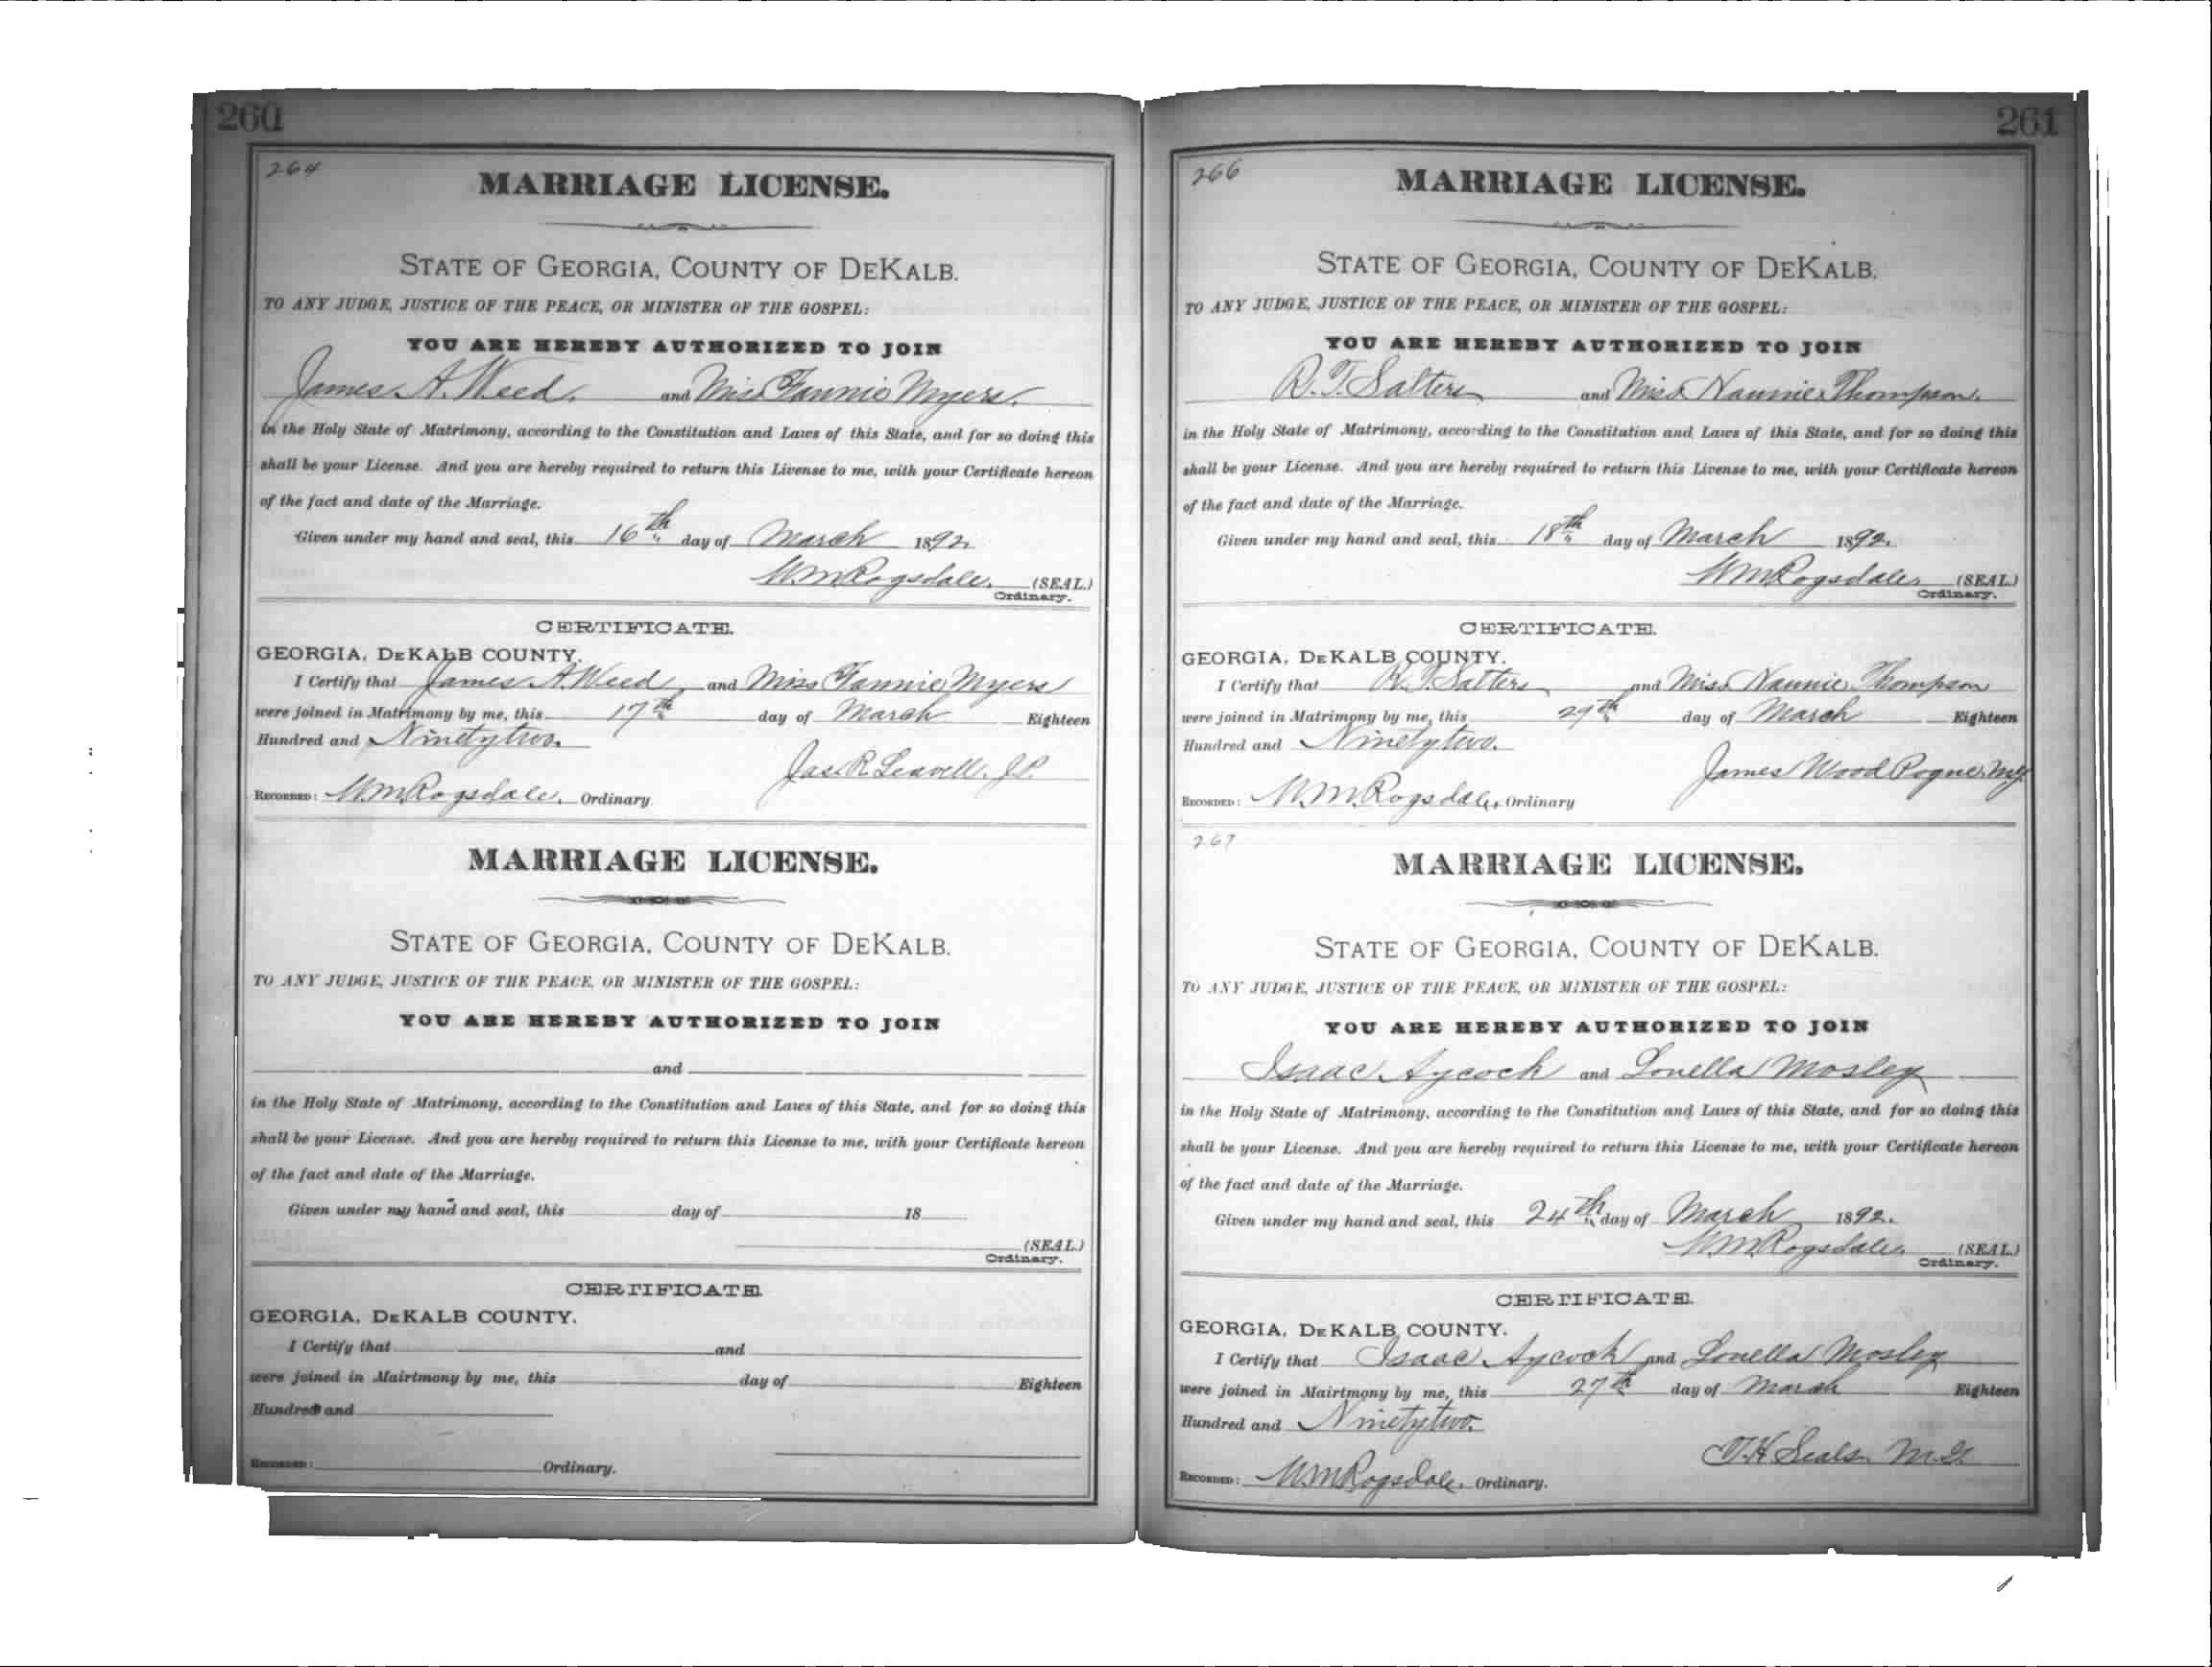 260
264
MARRIAGE LICENSE.
STATE OF GEORGIA, COUNTY OF DEKALB.
TO ANY JUDGE, JUSTICE OF THE PEACE, OR MINISTER OF THE GOSPEL:
YOU ARE HEREBY AUTHORIZED TO JOIN
James A. Weed. and Miss Fannie Myers.
in the Holy State of Matrimony, according to the Constitution and Laws of this State, and for so doing this
shall be your License. And you are hereby required to return this License to me, with your Certificate hereon
of the fact and date of the Marriage.
Given under my hand and seal, this 16th day of March 1892
W.M. Ragsdale. (SEAL.)
Ordinary.
CERTIFICATE.
GEORGIA, DEKALB COUNTY.
I Certify that James A. Weed and Miss Fannie Myers
were joined in Matrimony by me, this 17th day of March Eighteen
Hundred and Ninety two.
Jas. R. Leavell. J.P.
RECORDED: W.M. Ragsdale. Ordinary
MARRIAGE LICENSE.
STATE OF GEORGIA, COUNTY OF DEKALB.
TO ANY JUDGE, JUSTICE OF THE PEACE, OR MINISTER OF THE GOSPEL:
YOU ARE HEREBY AUTHORIZED TO JOIN
and
in the Holy State of Matrimony, according to the Constitution and Laws of this State, and for so doing this
shall be your License. And you are hereby required to return this License to me, with your Certificate hereon
of the fact and date of the Marriage.
Given under my hand and seal, this day of 18
(SEAL.)
Ordinary.
CERTIFICATE.
GEORGIA, DEKALB COUNTY.
I Certify that and
were joined in Mairtmony by me, this day of Eighteen
Hundred and
RECORDED: Ordinary.
261
266
MARRIAGE LICENSE.
STATE OF GEORGIA, COUNTY OF DEKALB.
TO ANY JUDGE, JUSTICE OF THE PEACE, OR MINISTER OF THE GOSPEL:
YOU ARE HEREBY AUTHORIZED TO JOIN
R. T. Salters and Miss Nannie Thompson.
in the Holy State of Matrimony, according to the Constitution and Laws of this State, and for so doing this
shall be your License. And you are hereby required to return this License to me, with your Certificate hereon
of the fact and date of the Marriage.
Given under my hand and seal, this 18th day of March 1892.
W.M. Ragsdale. (SEAL.)
Ordinary.
CERTIFICATE.
GEORGIA, DEKALB COUNTY.
I Certify that R. T. Salters and Miss Nannie Thompson
were joined in Matrimony by me, this 29th day of March Eighteen
Hundred and Ninety two.
James Wood Pogue, M.G.
RECORDED: W.M. Ragsdale. Ordinary
267
MARRIAGE LICENSE.
STATE OF GEORGIA, COUNTY OF DEKALB.
TO ANY JUDGE, JUSTICE OF THE PEACE, OR MINISTER OF THE GOSPEL:
YOU ARE HEREBY AUTHORIZED TO JOIN
Isaac Aycock and Louella Mosley
in the Holy State of Matrimony, according to the Constitution and Laws of this State, and for so doing this
shall be your License. And you are hereby required to return this License to me, with your Certificate hereon
of the fact and date of the Marriage.
Given under my hand and seal, this 24th day of March 1892.
W.M. Ragsdale. (SEAL.)
Ordinary.
CERTIFICATE.
GEORGIA, DEKALB COUNTY.
I Certify that Isaac Aycock and Louella Mosley
were joined in Mairtmony by me, this 27th day of March Eighteen
Hundred and Ninety two.
T. H. Seals M.G.
RECORDED: W.M. Ragsdale. Ordinary.